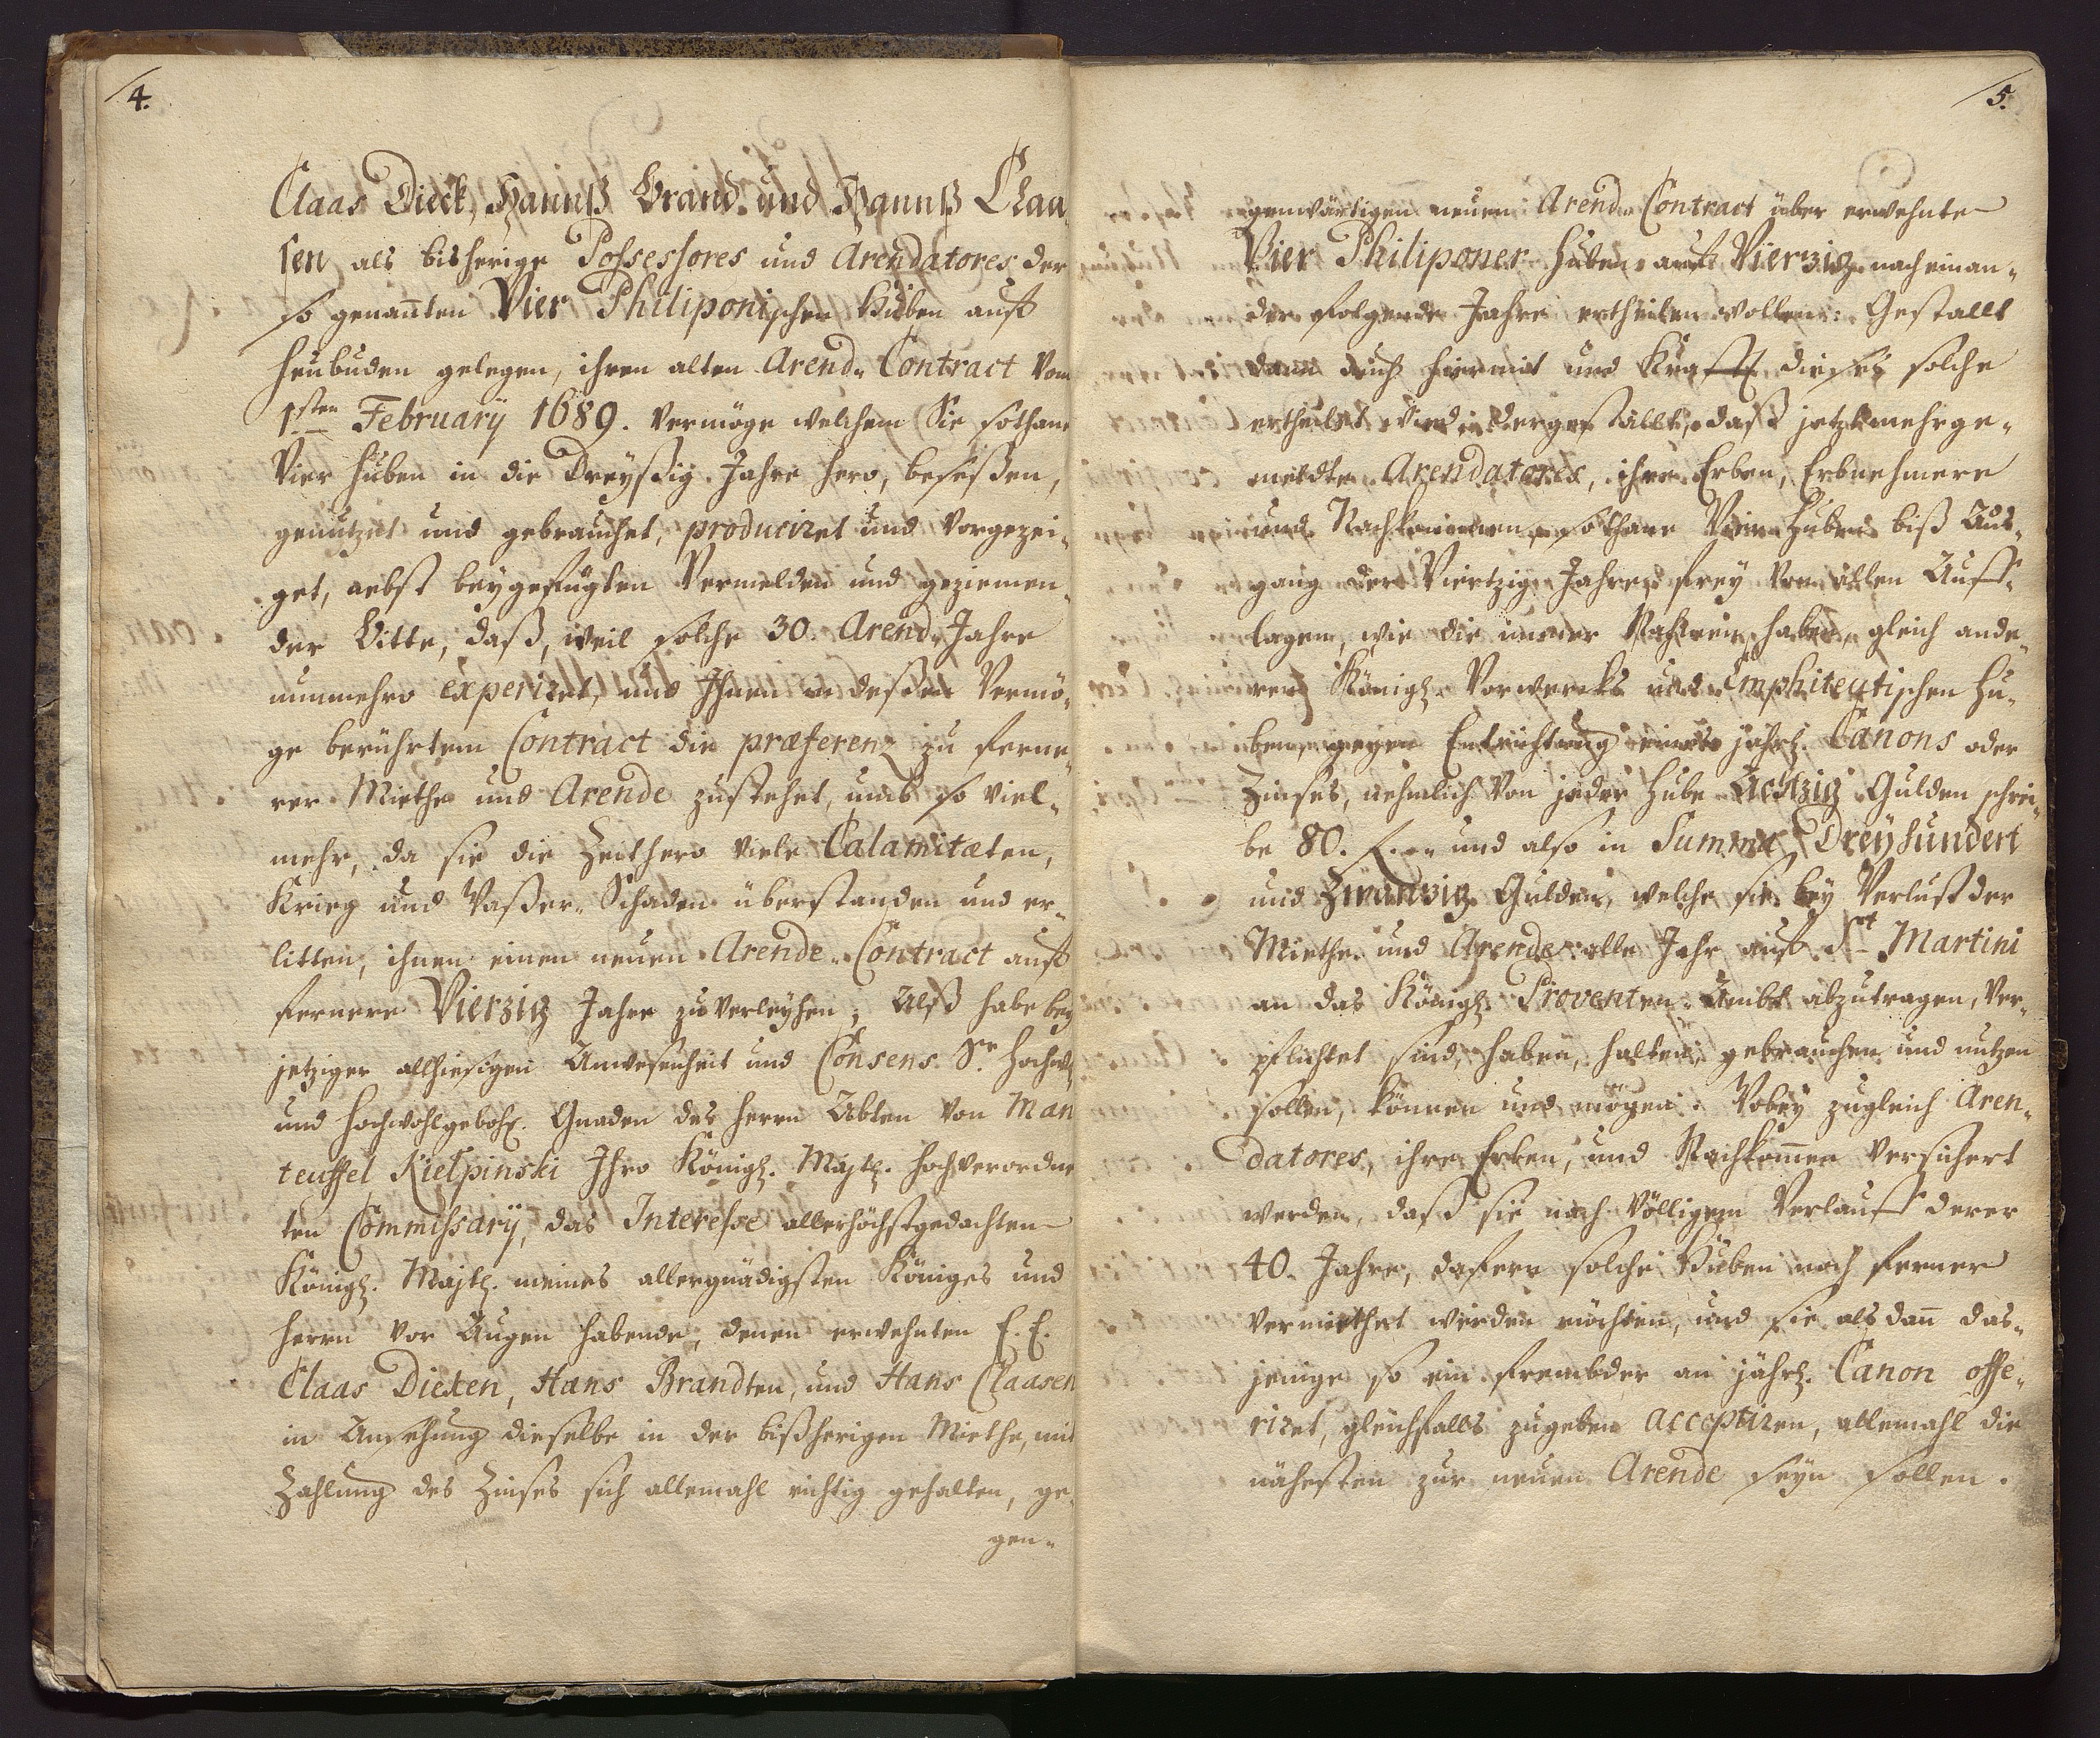 4.
Claas Dieck, Hannß Brand und Hannß Claa-
sen als bisherige Possessores und Arendatores der
so genañten Vier Philiponischen Huben auff
Heubuden gelegen, ihren alten Arend- Contract vom
1sten February 1689. vermöge welchem Sie sothane
Vier Huben in die Dreyßig Jahre hero, beseßen,
genutzet und gebrauchet, produciret und vorgezei-
get, nebst beygefügten Vermelden und geziemen-
der Bitte, daß, weil solche 30. Arend-Jahre
nunmehro experiret, und Ihnen in deßen Vermö-
ge berührtem Contract die præferenz zu ferne-
rer Miethe und Arende zustehet, umb so viel-
mehr, da sie die Zeithero viele Calamitæten,
Krieg und Waßer- Schaden überstanden und er-
litten, ihnen einen neuen Arende- Contract auff
fernere Vierzig Jahre zu verleyhen; Alß habe bey
jetziger allhiesigen Anwesenheit und Consens Sr. Hochw.
und Hochwohlgebohr. Gnaden des Herrn Abten von Man
teuffel Kielpinski Ihro Königl. Maytt. Hochverordne
ten Commissary, das Interesse allerhöchstgedachten
Königl. Maytt. meines allergnädigsten Königes und
Herrn vor Augen habende, denen erwehnten E. E.
Claas Diexen, Hans Brandten, und Hans Claasen
in Ansehung dieselbe in der bißherigen Miethe, mit
Zahlung des Zinses sich allemahl richtig gehalten, ge-
gen-
5.
genwärtigen neuen Arend- Contract über erwehnte
Vier Philiponer Huben auff Vierzig nach einan-
der folgende Jahre ertheilen wollen: Gestallt
dann auch hiermit und Krafft dieses solche
ertheilet wird, dergestallt, daß jetztmehrge-
meldte Arendatores, ihre Erben, Erbnehmere
und Nachkommen, sothane Vier Huben biß Aus-
gang der Viertzig Jahre, frey von allen Auff-
lagen, wie die immer Nahmen haben, gleich ande-
ren Königl. Vorwercks und Emphiteutischen Hu-
ben, gegen Entrichtung eines jährl. Canons oder
Zinses, nehmlich von jeder Hube Achtzig Gulden schrei-
be 80. f. und also in Summa Dreyhundert
und Zwantzig Gulden, welche sie bey Verlust der
Miethe und Arende alle Jahr auff St. Martini
an das Königl. Proventen- Ambt abzutragen, ver-
pflichtet sind, haben, halten, gebrauchen und nutzen
sollen, können und mögen. Wobey zugleich Aren-
datores, ihre Erben, und Nachkom̃en versichert
werden, daß sie nach völligem Verlauff derer
40. Jahre, dafern solche Huben noch ferner
vermiethet werden möchten, und sie alsdañ das-
jenige so ein frembder an jährl. Canon offe-
riret, gleichfalls zugeben acceptiren, allemahl die
nähesten zur neuen Arende seyn sollen.